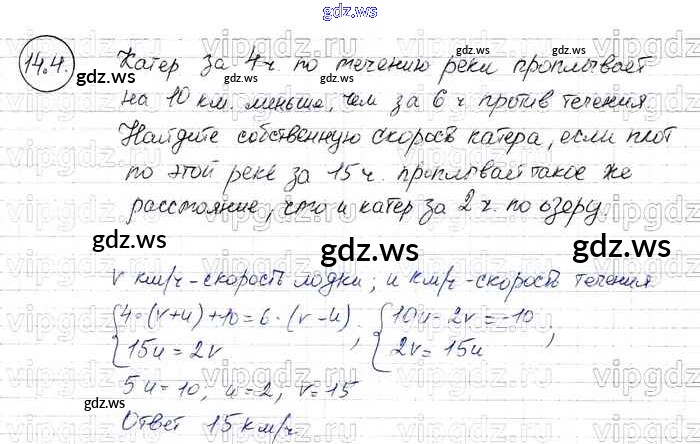 gdz.ws
14.4. Катер за 4ч по течению реки проплывает
на 10 км. меньше, чем за 6 ч против течения.
Найдите собственную скорость катера, если плот
по этой реке за 15 ч. проплывай такое же
расстояние, что и катер за 2 ч. по озеру.
v км/ч - скорость лодки; u км/ч - скорость течения
{4·(v+u)+10=6·(v-u); {10u-2v=-10;
15u=2v 2v=15u
5u=10, u=2, v=15
Ответ 15 км/ч
gdz.ws
gdz.ws
gdz.ws
gdz.ws
gdz.ws
gdz.ws
gdz.ws
gdz.ws
gdz.ws
gdz.ws
vipgdz.ru